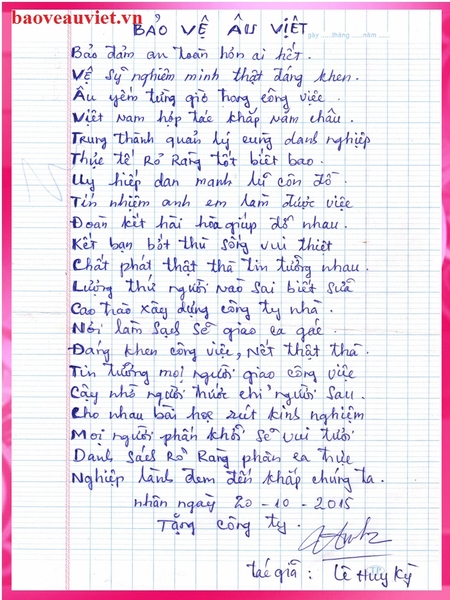 baoveauviet.vn
BẢO VỆ ÂU VIỆT
gày ......tháng ......năm ......
Bảo đảm an toàn hơn ai hết.
Vệ sỹ nghiêm minh thật đáng khen.
Âu yếm từng giờ trong công việc.
Việt Nam hợp tác khắp năm châu.
Trung thành quản lý cùng danh nghiệp
Thực tế Rõ Ràng tốt biết bao.
Uy hiếp dan manh lũ côn đồ.
Tín nhiệm anh em làm được việc
Đoàn kết hài hòa giúp đỡ nhau.
Kết bạn bớt thù sống vui thiệt
Chất phát thật thà tin tưởng nhau.
Lượng thứ người nào sai biết sửa
Cao trào xây dựng công ty nhà.
Nơi làm sạch sẽ giao ca gác.
Đáng khen công việc, Nết thật thà.
Tin tưởng mọi người giao công việc
Cậy nhờ người trước chỉ người sau.
Cho nhau bài học rút kinh nghiệm
Mọi người phấn khởi sẽ vui tươi
Danh sách Rõ Ràng phân ca trực
Nghiệp lành đem đến khắp chúng ta.
nhân ngày 20-10-2015
Tặng công ty.
tác giả : Lê Huy Kỳ